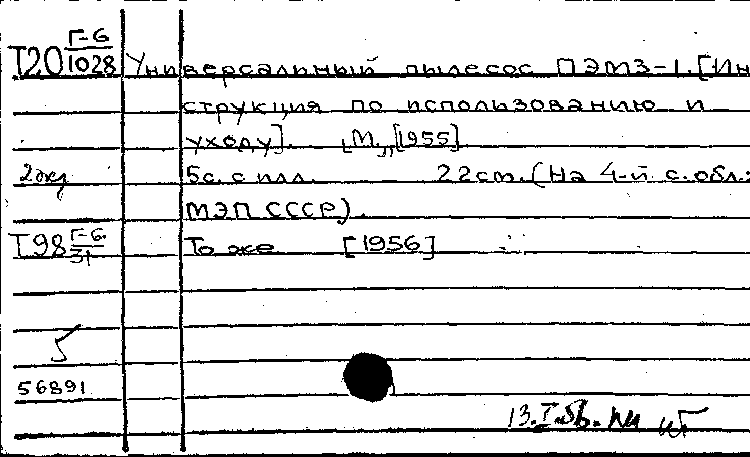 Г-6
Т20 1028 Универсальный пылесос ПЭМЗ-1. [Ин
струкция по использованию и
уходу]. [М., [1955]
2 экз 5с. с илл. 22 см. (На 4-й с. обл.:
МЭП СССР).
Т98 Г-6 То же [1956]
31
5
56891
13.I.56.